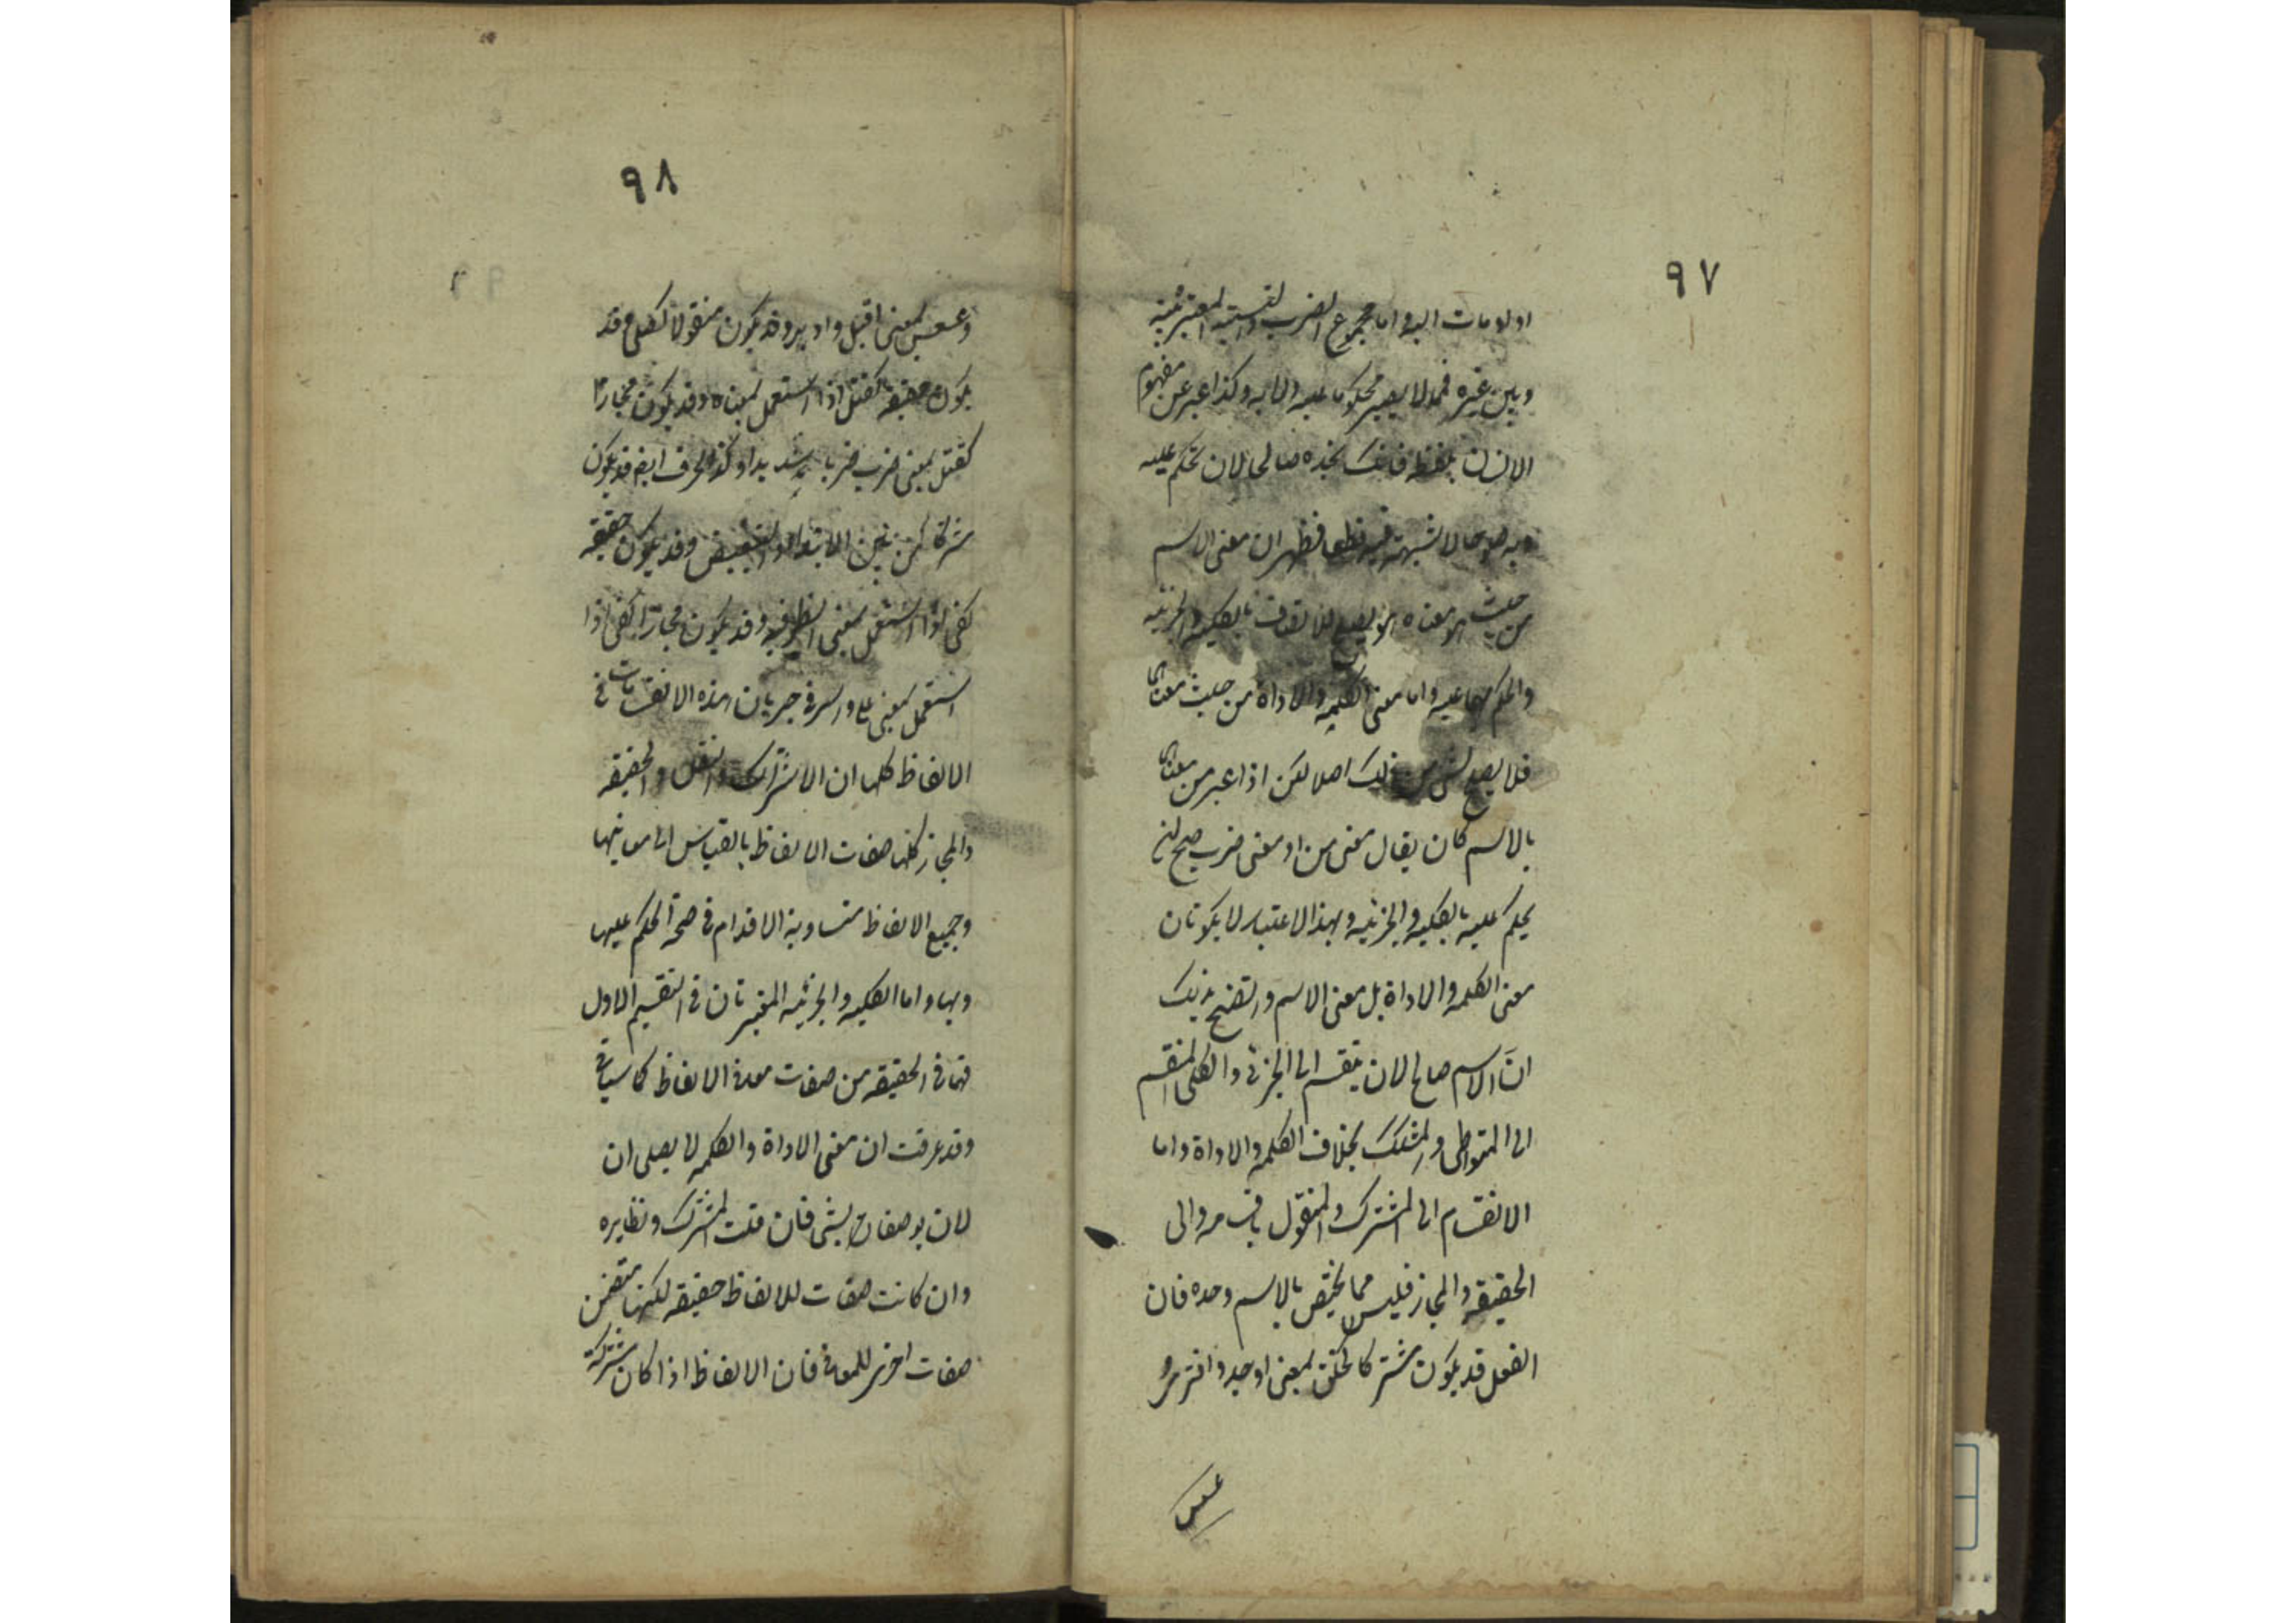 ٩٧
او لوحات اليه واما مجموع الضرب والنسبة المعتبرة بينه
وبين غيره فمما لا يصير محكوما عليه ولا به وكذا عبر عن مفهوم
الانسان بلفظه فانك تجده صالحا لان تحكم عليه
وبه صلوحا لا شبهة فيه قطعا فظهر ان معنى الاسم
من حيث هو معناه يصلح للاتصاف بالكلية والجزئية
والحكم بهما عليه واما معنى الكلمة والاداة من حيث معناهما
فلا يصلح لشئ من ذلك اصلا لكن اذا عبر عن معناهما
بالاسم كان يقال معنى من او معنى ضرب صح ان
يحكم عليه بالكلية والجزئية وبهذا الاعتبار لا يكونان
معنى الكلمة والاداة بل معنى الاسم واتضح بذلك
ان الاسم صالح لان ينقسم الى الجزئى والكلى المنقسم
الى المتواطى والمشكك بخلاف الكلمة والاداة واما
الانقسام الى المشترك والمنقول باقسامه والى
الحقيقة والمجاز فليس مما يختص بالاسم وحده فان
الفعل قد يكون مشتركا كخلق بمعنى اوجد وافترى و
عسعس
٩٨
وعسعس بمعنى اقبل وادبر وقد يكون منقولا كصلى وقد
يكون حقيقة كقتل اذا استعمل بمعناه وقد يكون مجازا
كقتل بمعنى ضرب ضربا شديدا وكذا الحرف ايضا قد يكون
مشتركا كمن بين الابتداء والتبعيض وقد يكون حقيقة
كفى اذا استعمل بمعنى الظرفية وقد يكون مجازا كفى اذا
استعمل بمعنى على والسر فى جريان هذه الانقسامات فى
الالفاظ كلها ان الاشتراك والنقل والحقيقة
والمجاز كلها صفات الالفاظ بالقياس الى معانيها
وجميع الالفاظ متساوية الاقدام فى صحة الحكم عليها
وبها واما الكلية والجزئية المعتبرتان فى التقسيم الاول
فهما فى الحقيقة من صفات معانى الالفاظ كما سياتى
وقد عرفت ان معنى الاداة والكلمة لا يصلحان
لان يوصفا بشئ فان قلت المشترك ونظايره
وان كانت صفات للالفاظ حقيقة لكنها تتضمن
صفات اخرى للمعانى فان الالفاظ اذا كان مشتركة